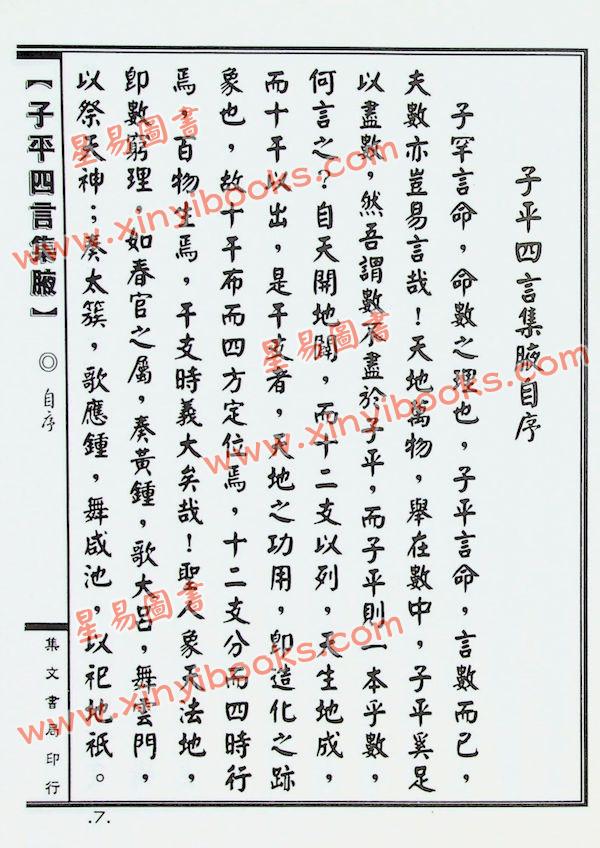 子平四言集腋自序
子罕言命，命數之理也，子平言命，言數而已，
夫數亦豈易言哉！天地萬物，舉在數中，子平奚足
以盡數，然吾謂數不盡於子平，而子平則一本乎數，
何言之？自天開地闢，而十二支以列，天生地成，
而十干以出，是干支者，天地之功用，卽造化之跡
象也，故十干布而四方定位焉，十二支分而四時行
焉，百物生焉，干支時義大矣哉！聖人象天法地，
卽數窮理。如春官之屬，奏黃鍾，歌大呂，舞雲門，
以祭天神；奏太簇，歌應鍾，舞咸池，以祀地祇。
【子平四言集腋】
◎自序
集文書局印行
.7.
星易圖書
www.xinyibooks.com
星易圖書
www.xinyibooks.com
星易圖書
www.xinyibooks.com